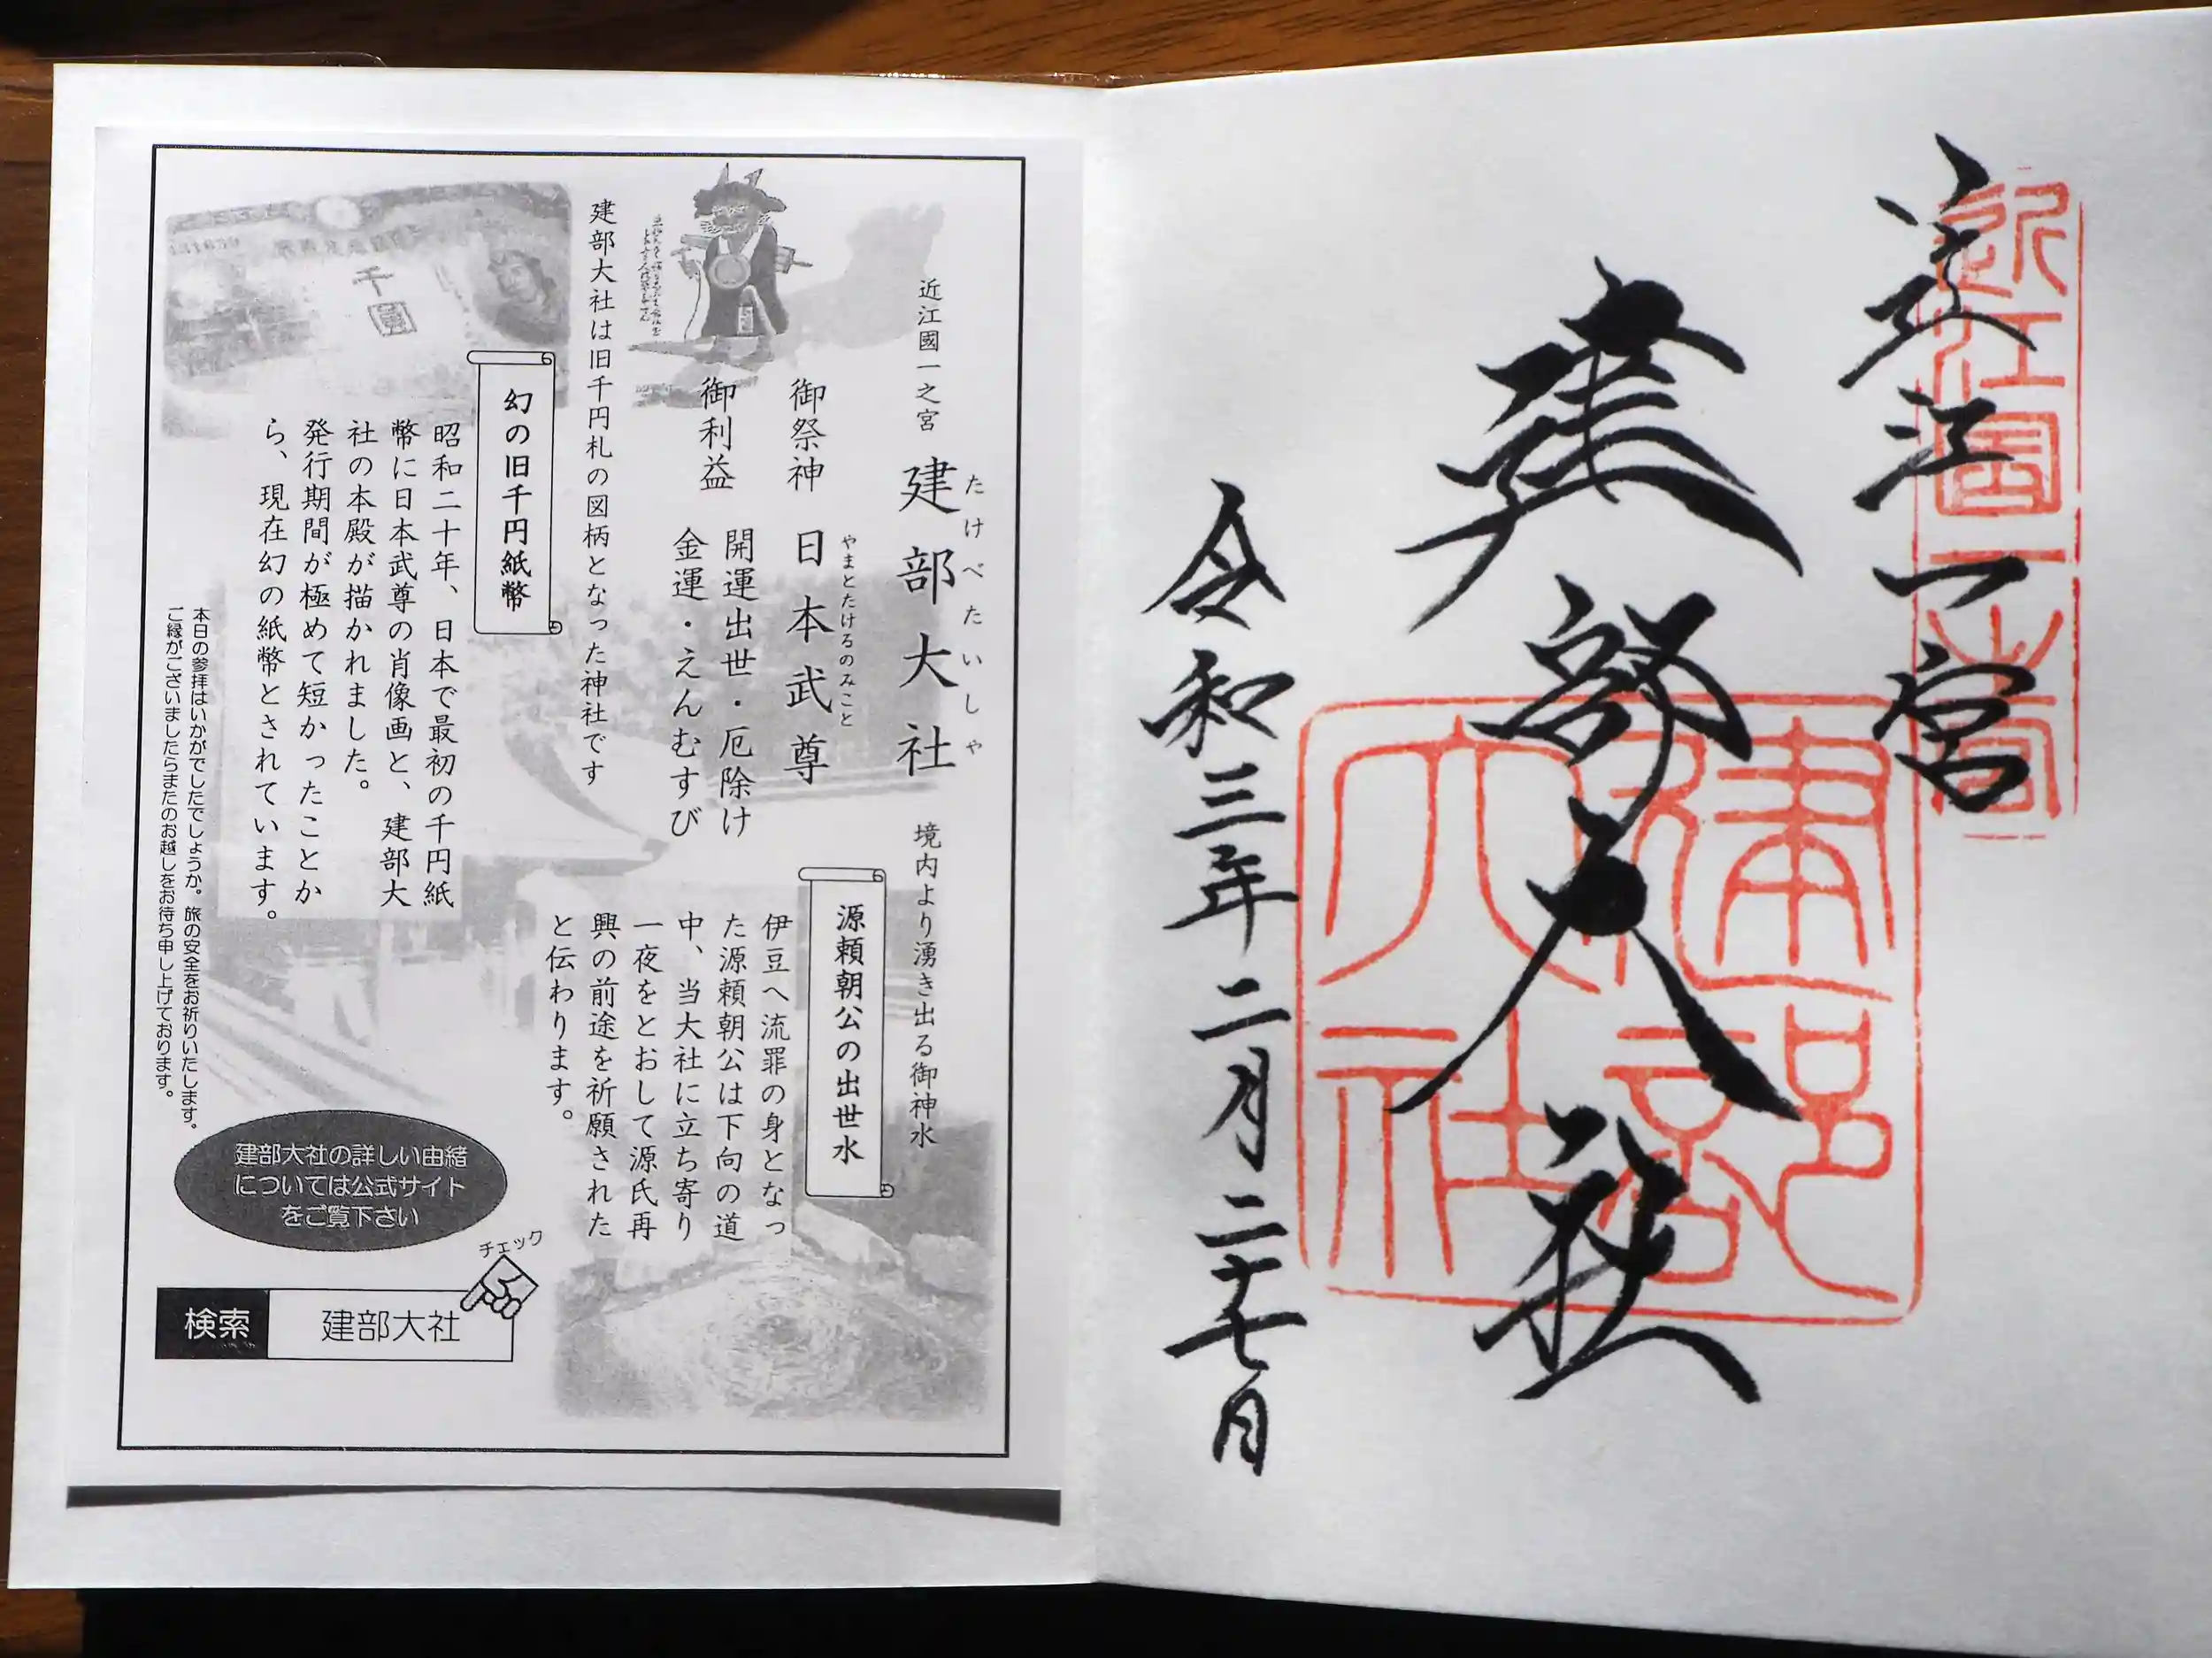 近江一宮
近江國一之宮
建部大社
建部大社
令和三年二月二十七日
近江國一之宮
建部大社
たけべたいしゃ
御祭神 日本武尊
やまとたけるのみこと
御利益 開運出世・厄除け
金運・えんむすび
建部大社は旧千円札の図柄となった神社です
幻の旧千円紙幣
昭和二十年、日本で最初の千円紙
幣に日本武尊の肖像画と、建部大
社の本殿が描かれました。
発行期間が極めて短かったことか
ら、現在幻の紙幣とされています。
千圓
境内より湧き出る御神水
源頼朝公の出世水
伊豆へ流罪の身となっ
た源頼朝公は下向の道
中、当大社に立ち寄り
一夜をとおして源氏再
興の前途を祈願された
と伝わります。
本日の参拝はいかがでしたでしょうか。旅の安全をお祈りいたします。
ご縁がございましたらまたのお越しをお待ち申し上げております。
建部大社の詳しい由緒
については公式サイト
をご覧下さい
チェック
検索 建部大社